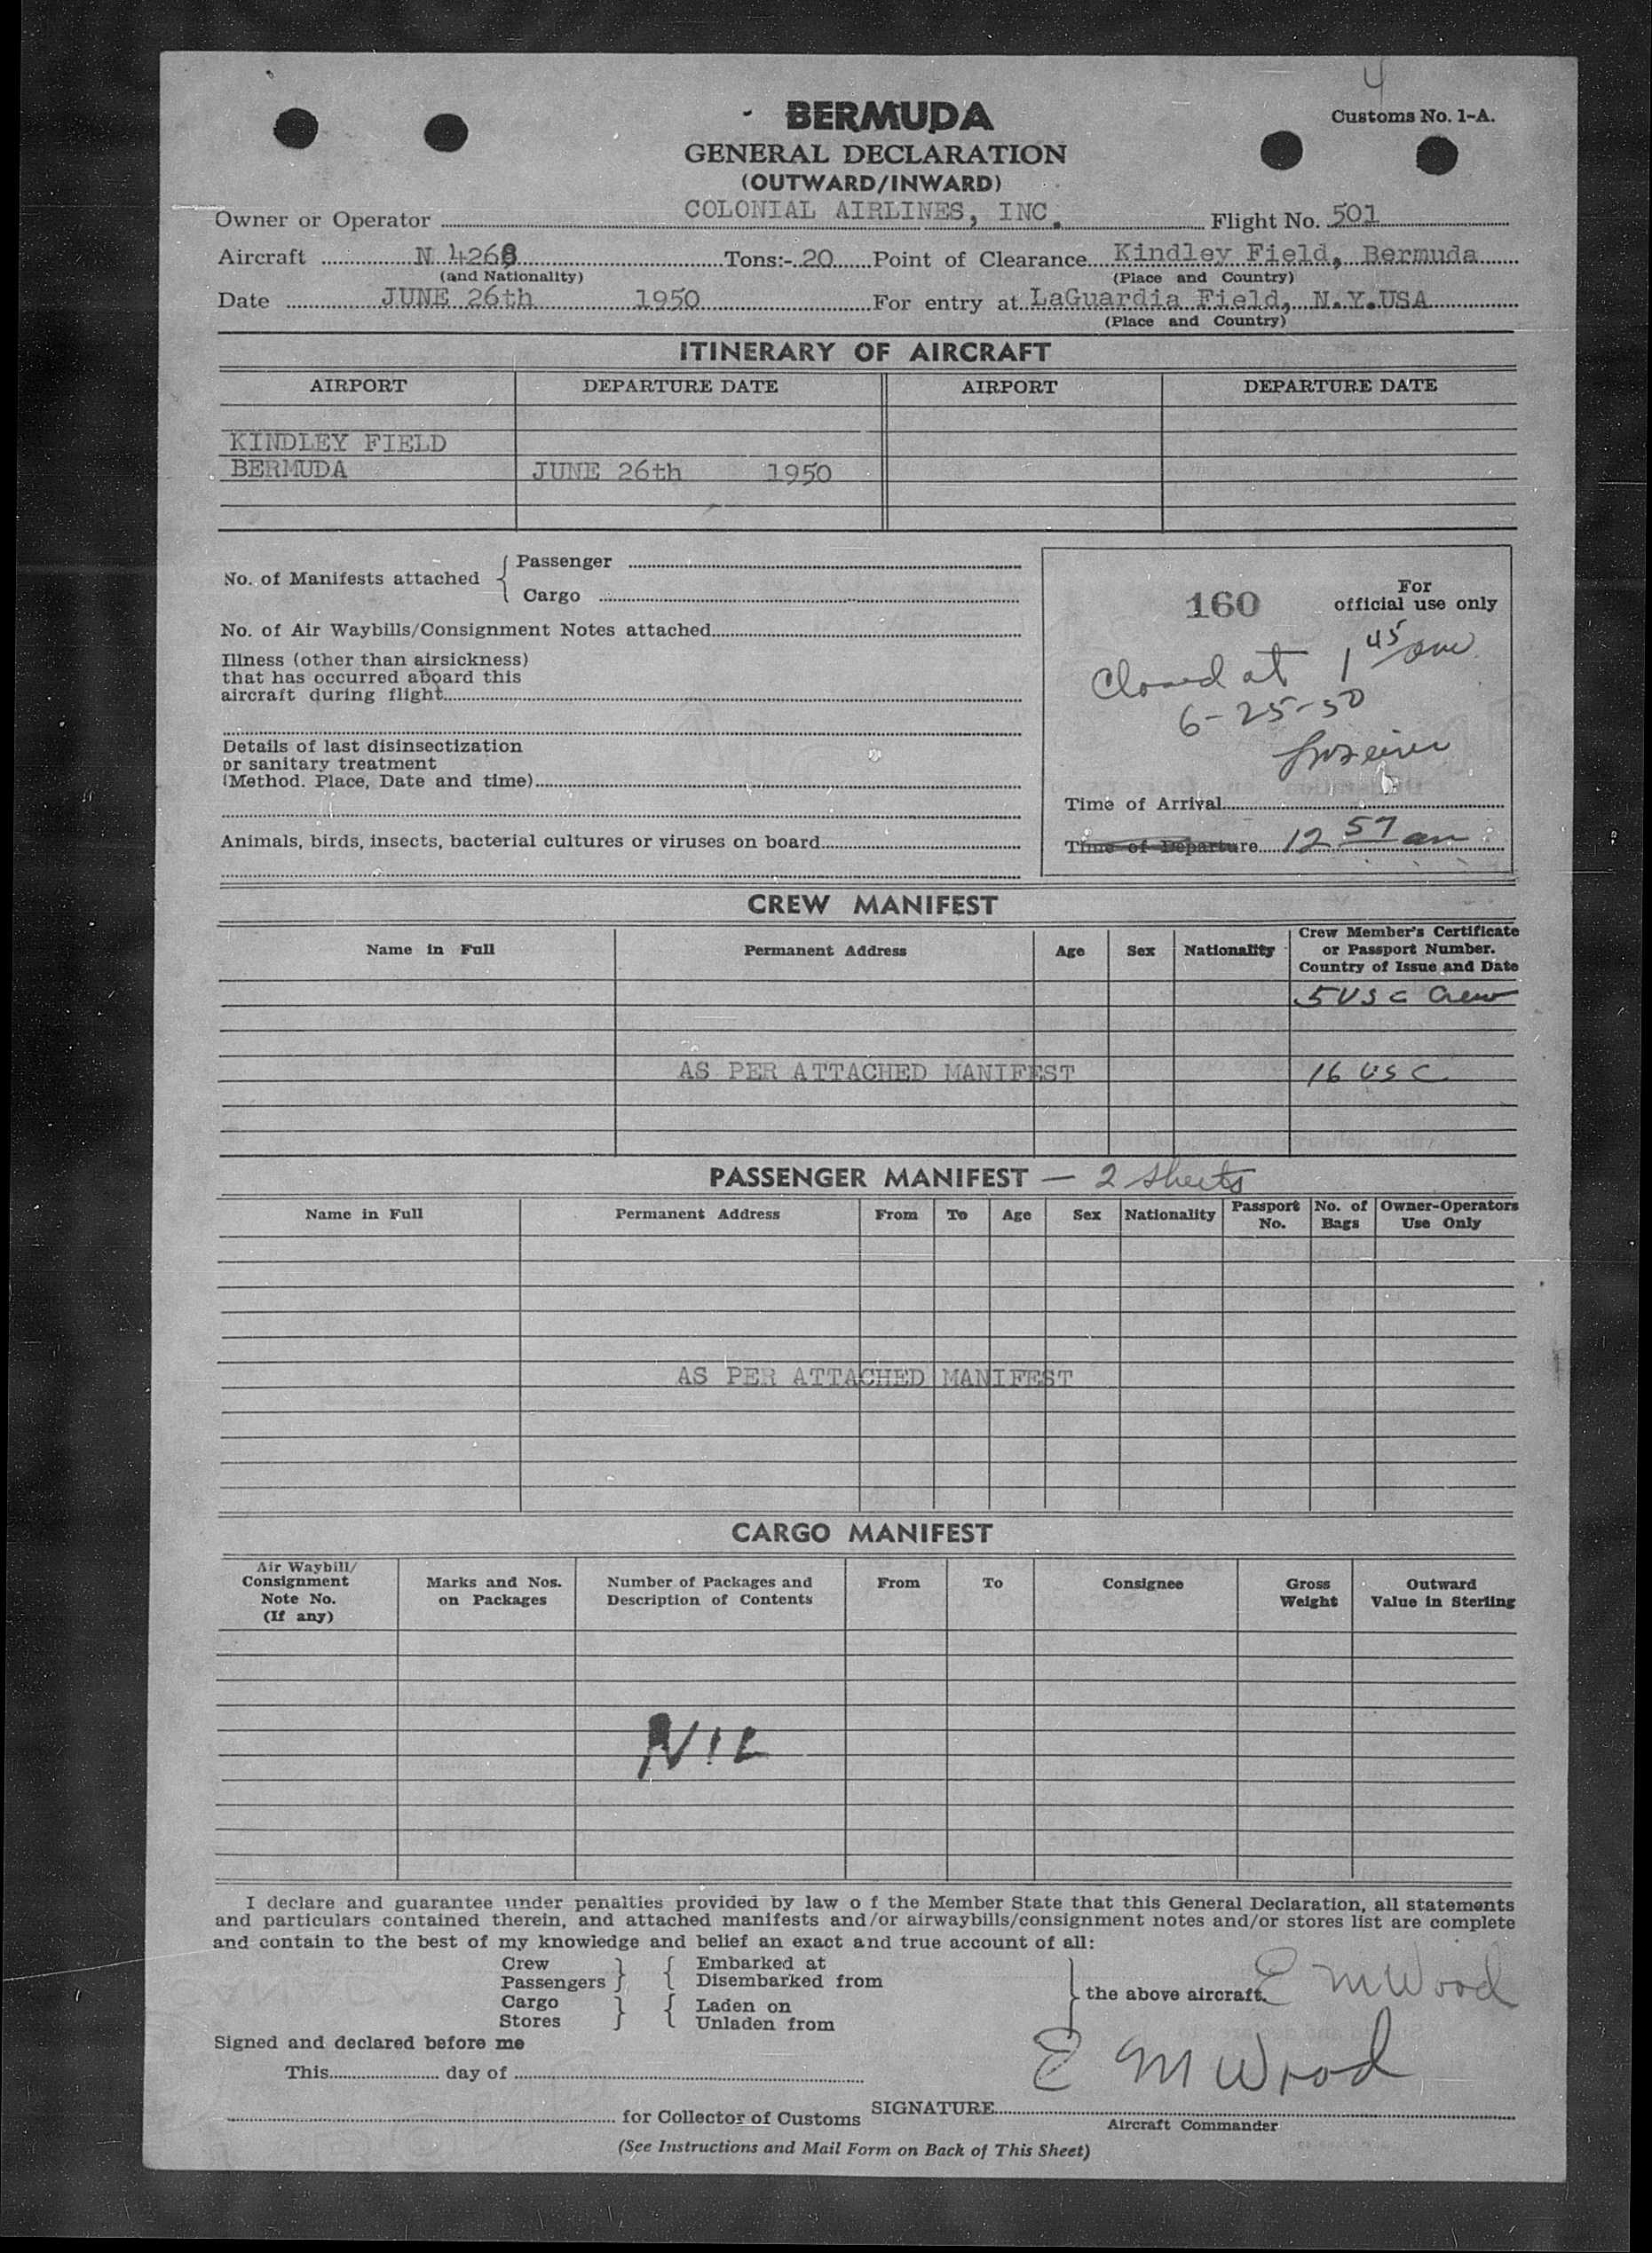 4
BERMUDA
Customs No. 1-A.
GENERAL DECLARATION
(OUTWARD/INWARD)
Owner or Operator COLONIAL AIRLINES, INC. Flight No. 501
Aircraft N 4268 Tons:- 20 Point of Clearance Kindley Field, Bermuda
(and Nationality) (Place and Country)
Date JUNE 26th 1950 For entry at LaGuardia Field, N.Y.USA
(Place and Country)
ITINERARY OF AIRCRAFT
AIRPORT DEPARTURE DATE AIRPORT DEPARTURE DATE
KINDLEY FIELD
BERMUDA JUNE 26th 1950
No. of Manifests attached { Passenger
Cargo
No. of Air Waybills/Consignment Notes attached
Illness (other than airsickness)
that has occurred aboard this
aircraft during flight
Details of last disinsectization
or sanitary treatment
(Method. Place, Date and time)
Animals, birds, insects, bacterial cultures or viruses on board
160 For
official use only
Closed at 1 45 am
6-25-50
Time of Arrival
Time of Departure 12 57 am
CREW MANIFEST
Name in Full Permanent Address Age Sex Nationality Crew Member's Certificate
or Passport Number.
Country of Issue and Date
5 USC Crew
AS PER ATTACHED MANIFEST 16 USC
PASSENGER MANIFEST — 2 sheets
Name in Full Permanent Address From To Age Sex Nationality Passport No. No. of Bags Owner-Operators Use Only
AS PER ATTACHED MANIFEST
CARGO MANIFEST
Air Waybill/
Consignment
Note No.
(If any)
Marks and Nos.
on Packages
Number of Packages and
Description of Contents
From To Consignee
Gross
Weight
Outward
Value in Sterling
NIL
I declare and guarantee under penalties provided by law o f the Member State that this General Declaration, all statements
and particulars contained therein, and attached manifests and/or airwaybills/consignment notes and/or stores list are complete
and contain to the best of my knowledge and belief an exact and true account of all:
Crew
Passengers } { Embarked at
Disembarked from
Cargo
Stores } { Laden on
Unladen from
} the above aircraft. E M Wood
Signed and declared before me
This day of
E M Wood
for Collector of Customs SIGNATURE
Aircraft Commander
(See Instructions and Mail Form on Back of This Sheet)